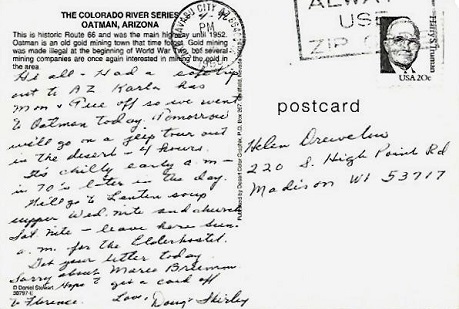 THE COLORADO RIVER SERIES
OATMAN, ARIZONA
This is historic Route 66 and was the main highway until 1952.
Oatman is an old gold mining town that time forgot. Gold mining
was made illegal at the beginning of World War Two, but several
mining companies are once again interested in mining the gold in
the area
Hi all - Had a safe trip
out to AZ Karla has
Mon & Tues off so we went
to Oatman today. Tomorrow
will go on a jeep tour out
in the desert - 4 hours.
It's chilly early a.m -
in 70's later in the day.
Will go to Lenten soup
supper Wed. nite and church
Sat nite - leave here Sun.
a.m. for the Elderhostel.
Got your letter today.
Sorry about
Hope I get a card off
to Florence. Love, Doug & Shirley
© Daniel Stewart
HAVASU CITY AZ
PM
ALWAYS
USE
ZIP
Harry S. Truman
USA 20c
postcard
Helen
220 S. High Point Rd
Madison WI 53717